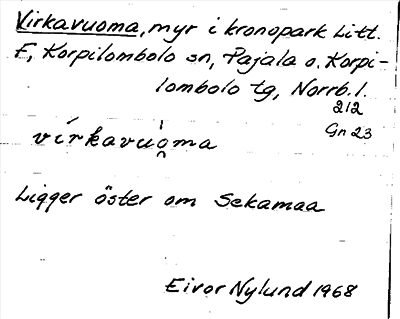 Virkavuoma, myr i kronopark Litt.
F, Korpilombolo sn, Pajala o. Korpi-
lombolo tg, Norrb. l.
212
Gn 23
vírkavùo̯ma
Ligger öster om Sekamaa
Eivor Nylund 1968